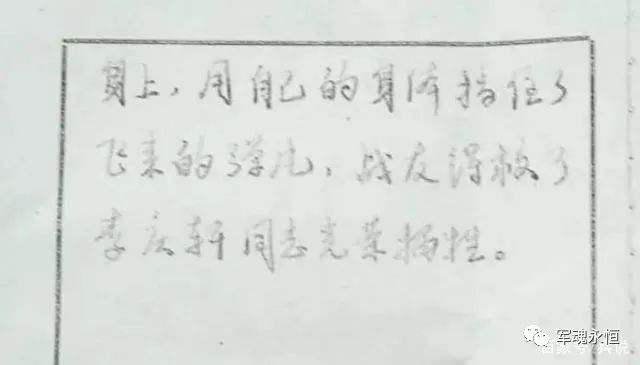 身上，用自己的身体挡住了
飞来的弹片，战友得救了
李庆轩同志光荣牺牲。
军魂永恒